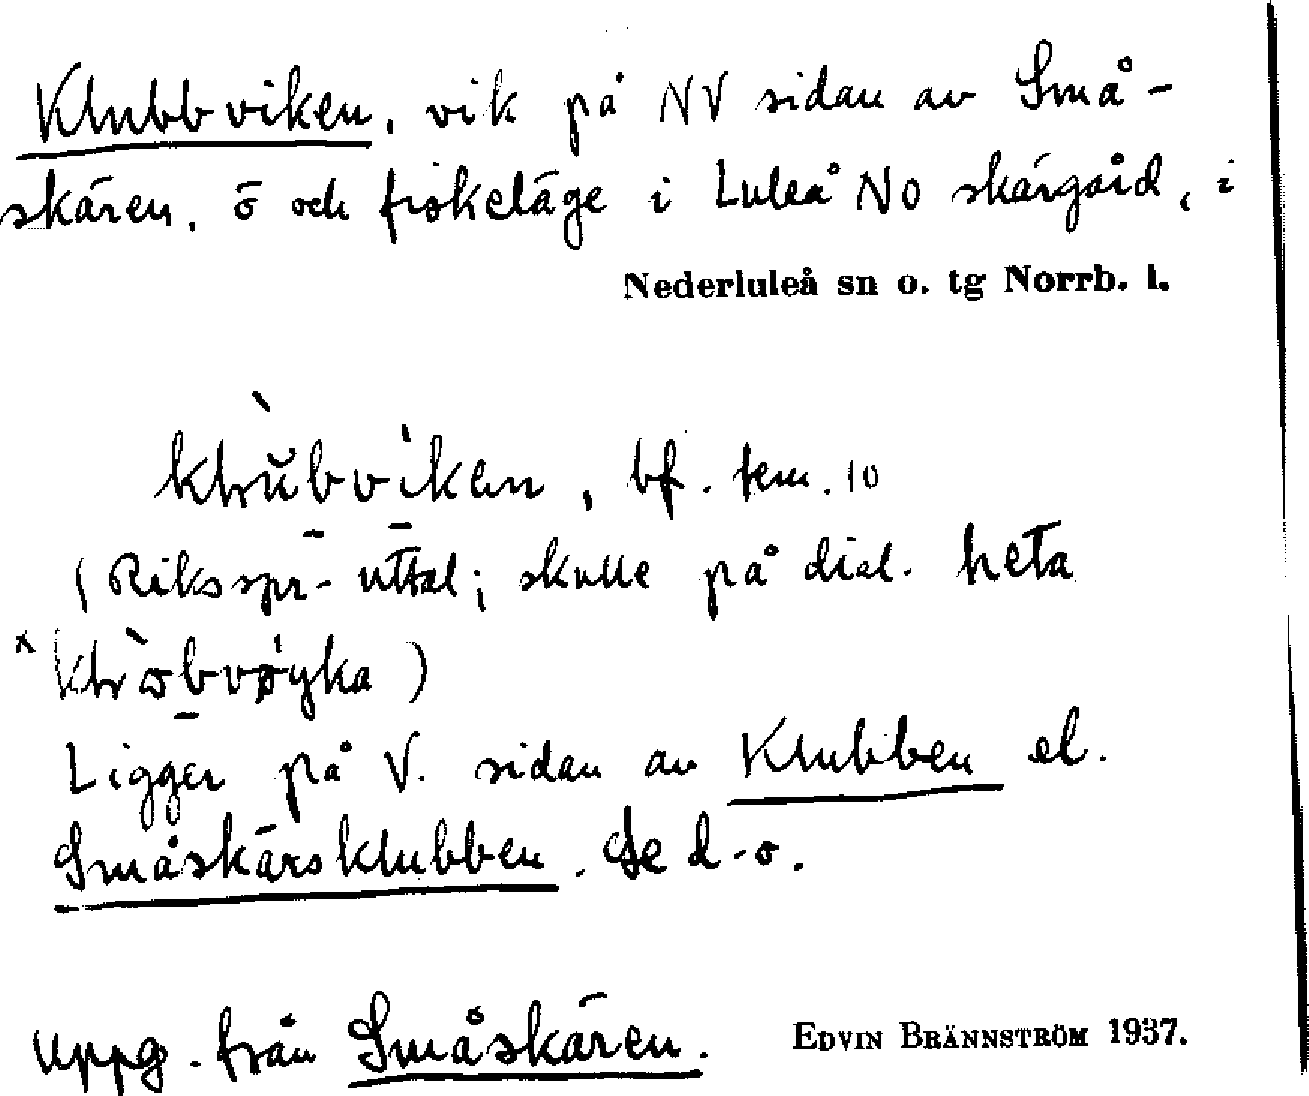 Klubbviken, vik på NV sidan av Små-
skären, ö och fiskeläge i Luleå NO skärgård, i
Nederluleå sn o. tg Norrb. l.
bf. fem.
(Riksspr-uttal; skulle på dial. heta
Ligger på V. sidan av Klubben el.
Småskärsklubben. Se d-o.
Uppg. från Småskären. EDVIN BRÄNNSTRÖM 1937.